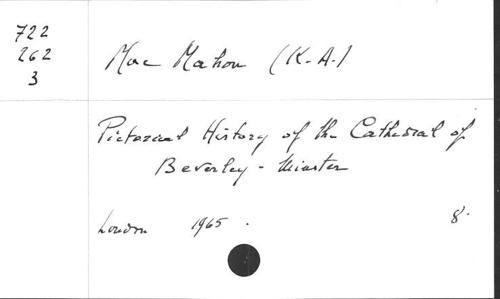 722
262
3
Mac Mahon (K.A.)
Pictorial History of the Cathedral of
Beverley - Minster
London 1965. 8°